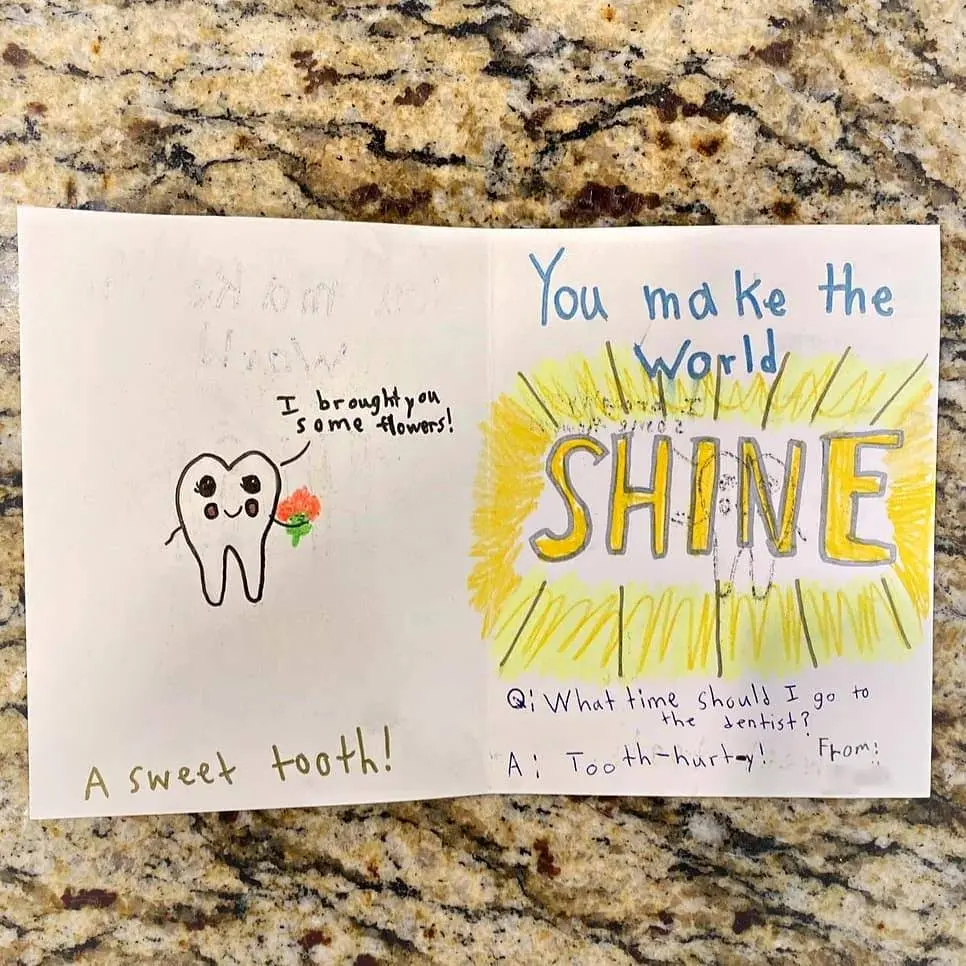 I brought you
some flowers!
A sweet tooth!
You make the
World
SHINE
Q: What time should I go to
the dentist?
A: Tooth-hurt-y!
From: